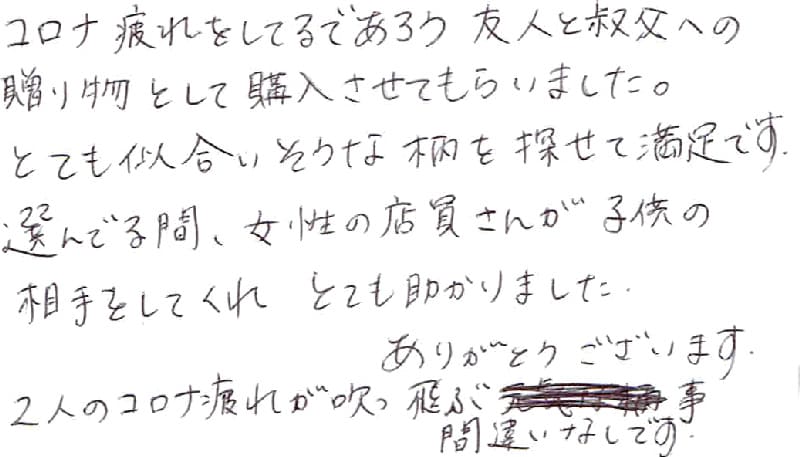 コロナ疲れをしてるであろう 友人と叔父への
贈り物として購入させてもらいました。
とても似合いそうな柄を探せて満足です.
選んでる間、女性の店員さんが子供の
相手をしてくれ とても助かりました.
ありがとうございます.
2人のコロナ疲れが吹っ飛ぶ 事
間違いなしです.